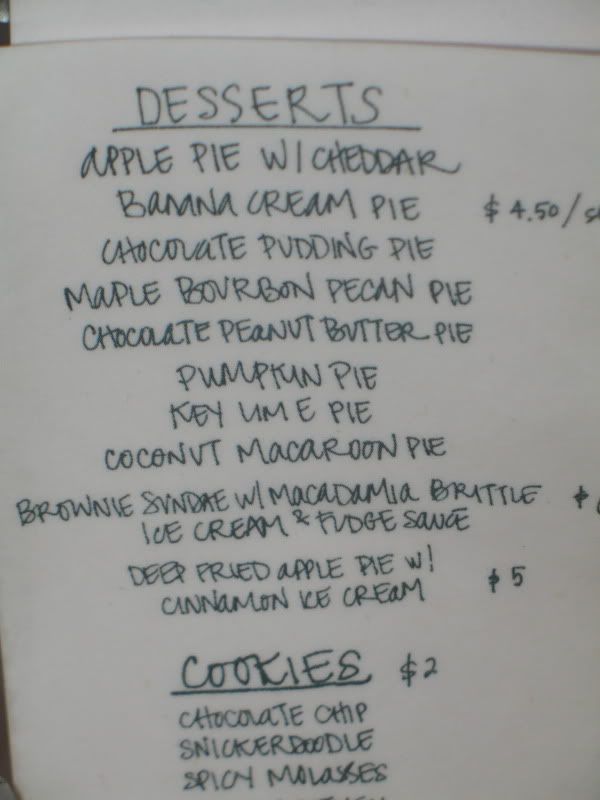 DESSERTS
APPLE PIE W/ CHEDDAR
BANANA CREAM PIE $ 4.50 /
CHOCOLATE PUDDING PIE
MAPLE BOURBON PECAN PIE
CHOCOLATE PEANUT BUTTER PIE
PUMPKIN PIE
KEY LIME PIE
COCONUT MACAROON PIE
BROWNIE SUNDAE W/ MACADAMIA BRITTLE $
ICE CREAM & FUDGE SAUCE
DEEP FRIED APPLE PIE W/
CINNAMON ICE CREAM $ 5
COOKIES $2
CHOCOLATE CHIP
SNICKERDOODLE
SPICY MOLASSES